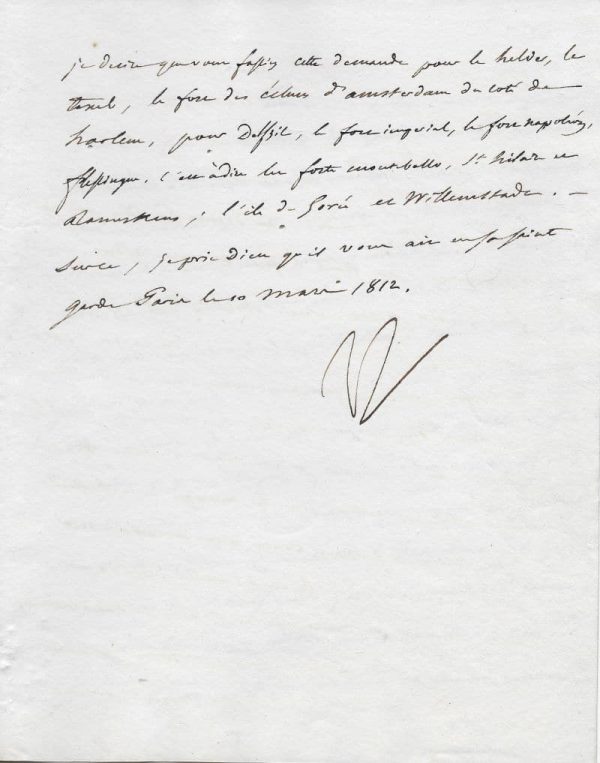 je desire que vous fassiez cette demande pour le helder, le
texel, le fort des écluses d'amsterdam du coté de
harlem, pour Delfzil, le fort imperial, le fort napoléon,
flessingue, c'est à dire les forts montebello, St hilaire et
Rammekens, l'ile de Goré et Willemstadt. —
Surce, je prie Dieu qu'il vous ait en sa sainte
garde Paris le 10 mars 1812.
N